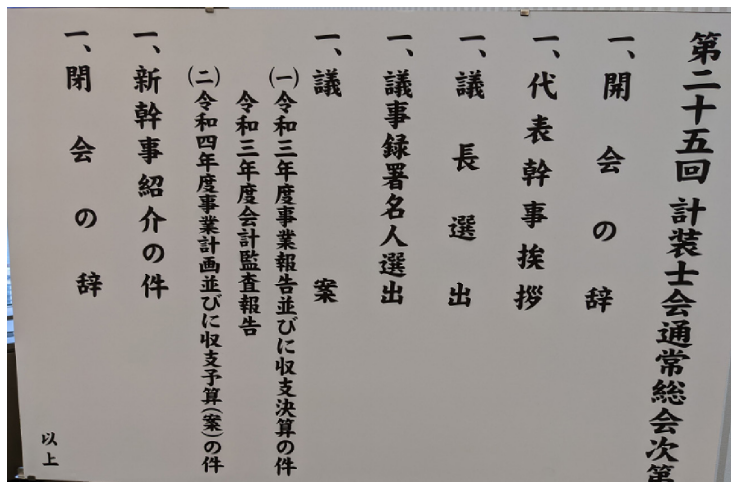 第二十五回 計装士会通常総会次第
一、開会の辞
一、代表幹事挨拶
一、議長選出
一、議事録署名人選出
一、議案
(一)令和三年度事業報告並びに収支決算の件
令和三年度会計監査報告
(二)令和四年度事業計画並びに収支予算(案)の件
一、新幹事紹介の件
一、閉会の辞
以上